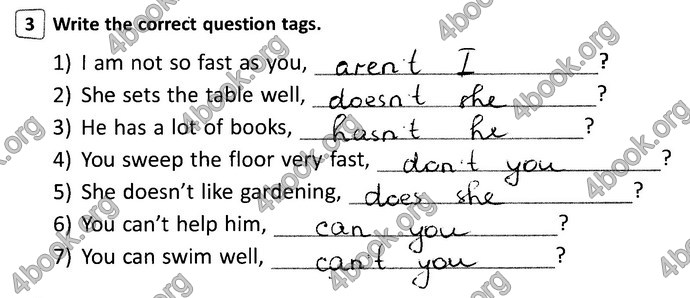 3 Write the correct question tags.
1) I am not so fast as you, aren't I ?
2) She sets the table well, doesn't she ?
3) He has a lot of books, hasn't he ?
4) You sweep the floor very fast, don't you ?
5) She doesn't like gardening, does she ?
6) You can't help him, can you ?
7) You can swim well, can't you ?
4book.org
4book.org
4book.org
4book.org
4book.org
4book.org
4book.org
4book.org